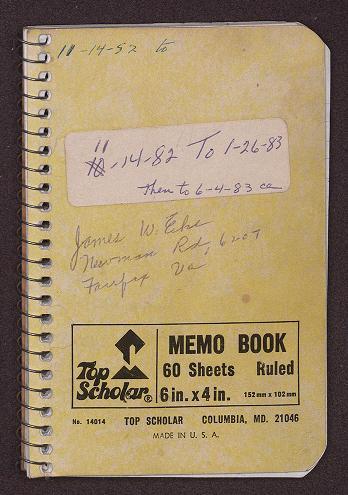 11-14-82 to
11-14-82 To 1-26-83
Then to 6-4-83 ca
James W. Eke
Newman Rd, 6207
Fairfax Va
Top Scholar®
MEMO BOOK
60 Sheets Ruled
6 in. x 4 in. 152 mm x 102 mm
No. 14014 TOP SCHOLAR COLUMBIA, MD. 21046
MADE IN U. S. A.